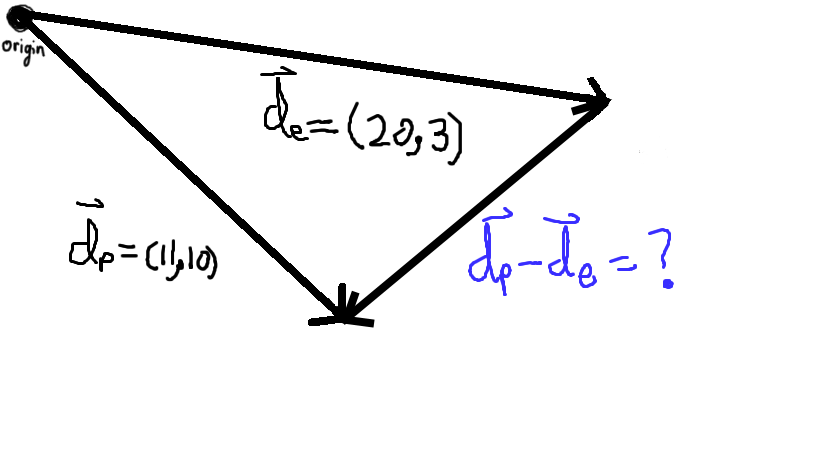 origin
d⃗ₑ=(20,3)
d⃗ₚ=(11,10)
d⃗ₚ-d⃗ₑ=?